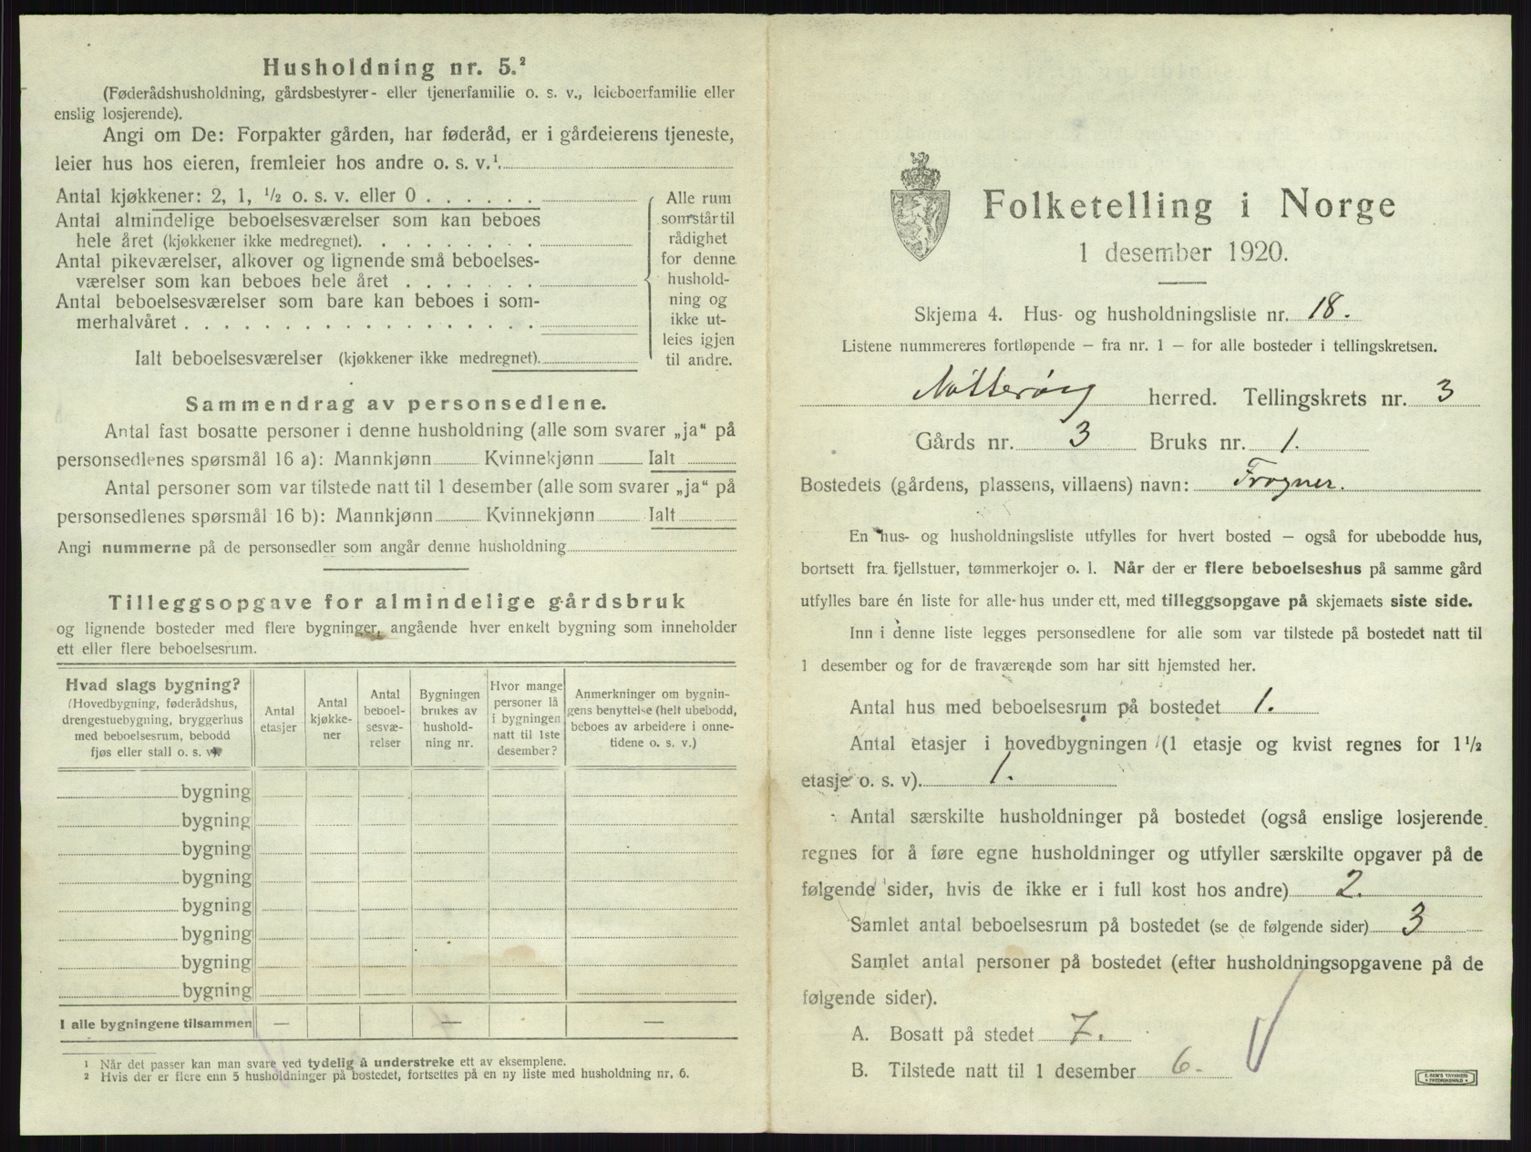 Husholdning nr. 5.²
(Føderådshusholdning, gårdsbestyrer- eller tjenerfamilie o. s. v., leieboerfamilie eller
enslig losjerende).
Angi om De: Forpakter gården, har føderåd, er i gårdeierens tjeneste,
leier hus hos eieren, fremleier hos andre o. s. v.¹
Antal kjøkkener: 2, 1, ½ o. s. v. eller 0
Antal almindelige beboelsesværelser som kan beboes
hele året (kjøkkener ikke medregnet).
Antal pikeværelser, alkover og lignende små beboelses-
værelser som kan beboes hele året
Antal beboelsesværelser som bare kan beboes i som-
merhalvåret
Ialt beboelsesværelser (kjøkkener ikke medregnet).
Alle rum
som står til
rådighet
for denne
hushold-
ning og
ikke ut-
leies igjen
til andre.
Sammendrag av personsedlene.
Antal fast bosatte personer i denne husholdning (alle som svarer „ja“ på
personsedlenes spørsmål 16 a): Mannkjønn Kvinnekjønn Ialt
Antal personer som var tilstede natt til 1 desember (alle som svarer „ja“ på
personsedlenes spørsmål 16 b): Mannkjønn Kvinnekjønn Ialt
Angi nummerne på de personsedler som angår denne husholdning
Tilleggsopgave for almindelige gårdsbruk
og lignende bosteder med flere bygninger, angående hver enkelt bygning som inneholder
ett eller flere beboelsesrum.
Hvad slags bygning?
(Hovedbygning, føderådshus,
drengestuebygning, bryggerhus
med beboelsesrum, bebodd
fjøs eller stall o. s. v.)
Antal
etasjer
Antal
kjøkke-
ner
Antal
beboel-
sesvæ-
relser
Bygningen
brukes av
hushold-
ning nr.
Hvor mange
personer lå
i bygningen
natt til 1ste
desember?
Anmerkninger om bygnin-
gens benyttelse (helt ubebodd,
beboes av arbeidere i onne-
tidene o. s. v.)
bygning
bygning
bygning
bygning
bygning
bygning
bygning
bygning
I alle bygningene tilsammen — — —
¹ Når det passer kan man svare ved tydelig å understreke ett av eksemplene.
² Hvis der er flere enn 5 husholdninger på bostedet, fortsettes på en ny liste med husholdning nr. 6.
Folketelling i Norge
1 desember 1920.
Skjema 4. Hus- og husholdningsliste nr. 18.
Listene nummereres fortløpende — fra nr. 1 — for alle bosteder i tellingskretsen.
Nøtterøy herred. Tellingskrets nr. 3
Gårds nr. 3 Bruks nr. 1.
Bostedets (gårdens, plassens, villaens) navn: Frogner.
En hus- og husholdningsliste utfylles for hvert bosted — også for ubebodde hus,
bortsett fra fjellstuer, tømmerkojer o. l. Når der er flere beboelseshus på samme gård
utfylles bare én liste for alle hus under ett, med tilleggsopgave på skjemaets siste side.
Inn i denne liste legges personsedlene for alle som var tilstede på bostedet natt til
1 desember og for de fraværende som har sitt hjemsted her.
Antal hus med beboelsesrum på bostedet 1.
Antal etasjer i hovedbygningen (1 etasje og kvist regnes for 1½
etasje o. s. v). 1.
Antal særskilte husholdninger på bostedet (også enslige losjerende
regnes for å føre egne husholdninger og utfyller særskilte opgaver på de
følgende sider, hvis de ikke er i full kost hos andre) 2.
Samlet antal beboelsesrum på bostedet (se de følgende sider) 3
Samlet antal personer på bostedet (efter husholdningsopgavene på de
følgende sider).
A. Bosatt på stedet 7.
B. Tilstede natt til 1 desember 6.